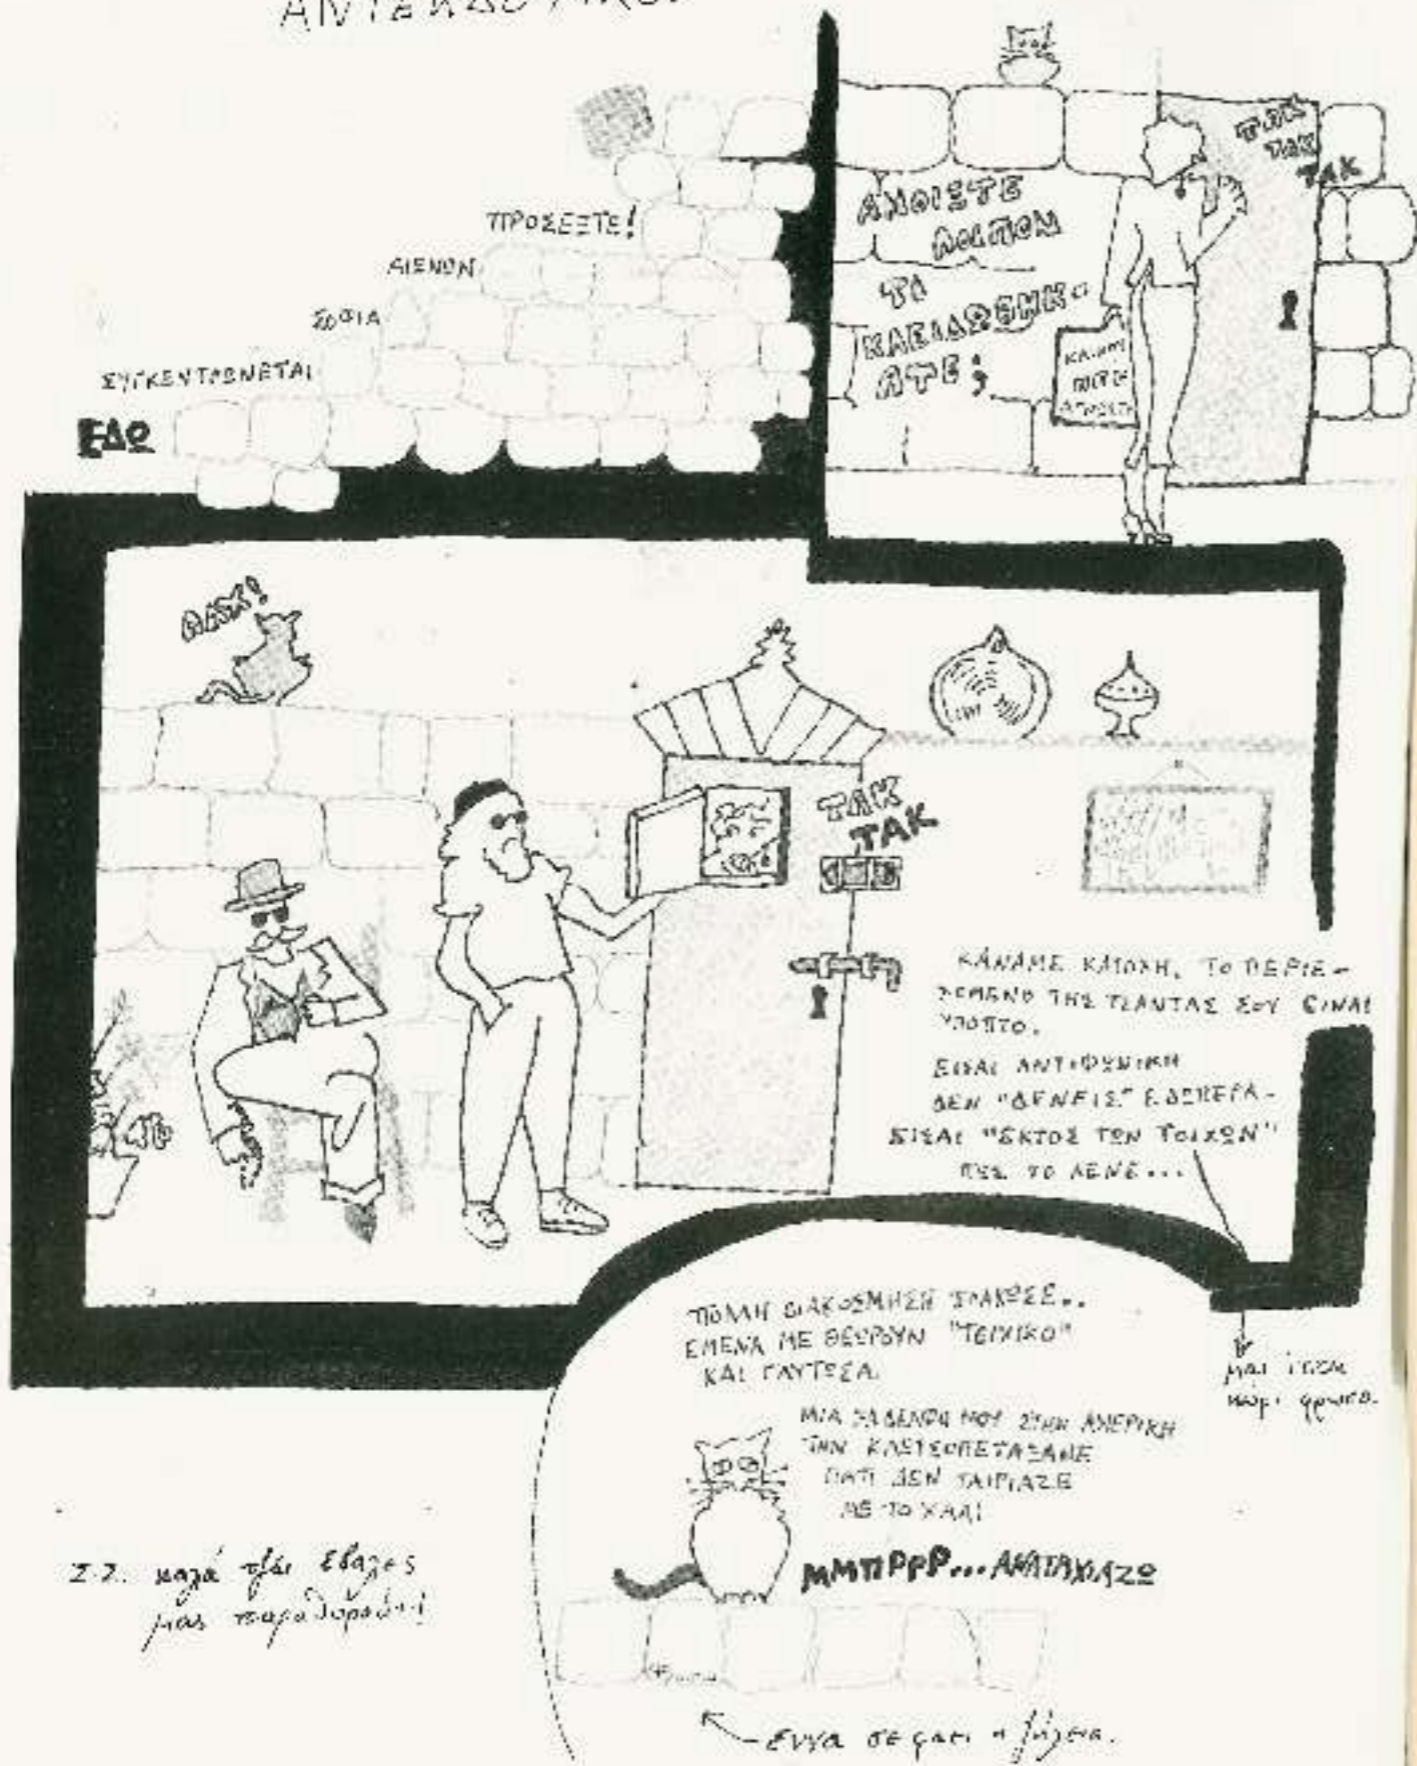 ΠΡΟΣΕΞΤΕ!
ΑΙΕΝΩΝ
ΣΟΦΙΑ
ΣΥΓΚΕΝΤΡΩΝΕΤΑΙ
ΕΔΩ
ΤΑΚ
ΤΑΚ
ΤΑΚ
ΑΝΟΙΞΤΕ
ΛΟΙΠΟΝ
ΤΙ
ΚΛΕΙΔΩΘΗΚ-
ΑΤΕ;
ΤΑΚ
ΤΑΚ
ΚΑΝΑΜΕ ΚΑΤΟΧΗ. ΤΟ ΠΕΡΙΕ-
ΧΟΜΕΝΟ ΤΗΣ ΤΣΑΝΤΑΣ ΣΟΥ ΕΙΝΑΙ
ΥΠΟΠΤΟ.
ΕΙΣΑΙ ΑΝΤΙΦΩΝΙΚΗ
ΔΕΝ "ΔΕΝΕΙΣ" ΕΔΩΠΕΡΑ-
ΕΙΣΑΙ "ΕΚΤΟΣ ΤΩΝ ΤΟΙΧΩΝ"
ΠΩΣ ΤΟ ΛΕΝΕ...
ΠΟΛΛΗ ΔΙΑΚΟΣΜΗΣΗ ΠΛΑΚΩΣΕ..
ΕΜΕΝΑ ΜΕ ΘΕΩΡΟΥΝ "ΤΟΙΧΙΚΟ"
ΚΑΙ ΓΛΥΤΩΣΑ.
ΜΙΑ ΞΑΔΕΛΦΗ ΜΟΥ ΣΤΗΝ ΑΜΕΡΙΚΗ
ΤΗΝ ΚΛΩΤΣΟΠΕΤΑΞΑΝΕ
ΓΙΑΤΙ ΔΕΝ ΤΑΙΡΙΑΖΕ
ΜΕ ΤΟ ΧΑΛΙ
ΜΜΠΡΡΡ...ΑΝΑΤΡΙΧΙΑΖΩ
Σ.Σ. καλά τζαι έβαλες
μας παραθυρούιν!
εννα σε φάει η ζήλεια.